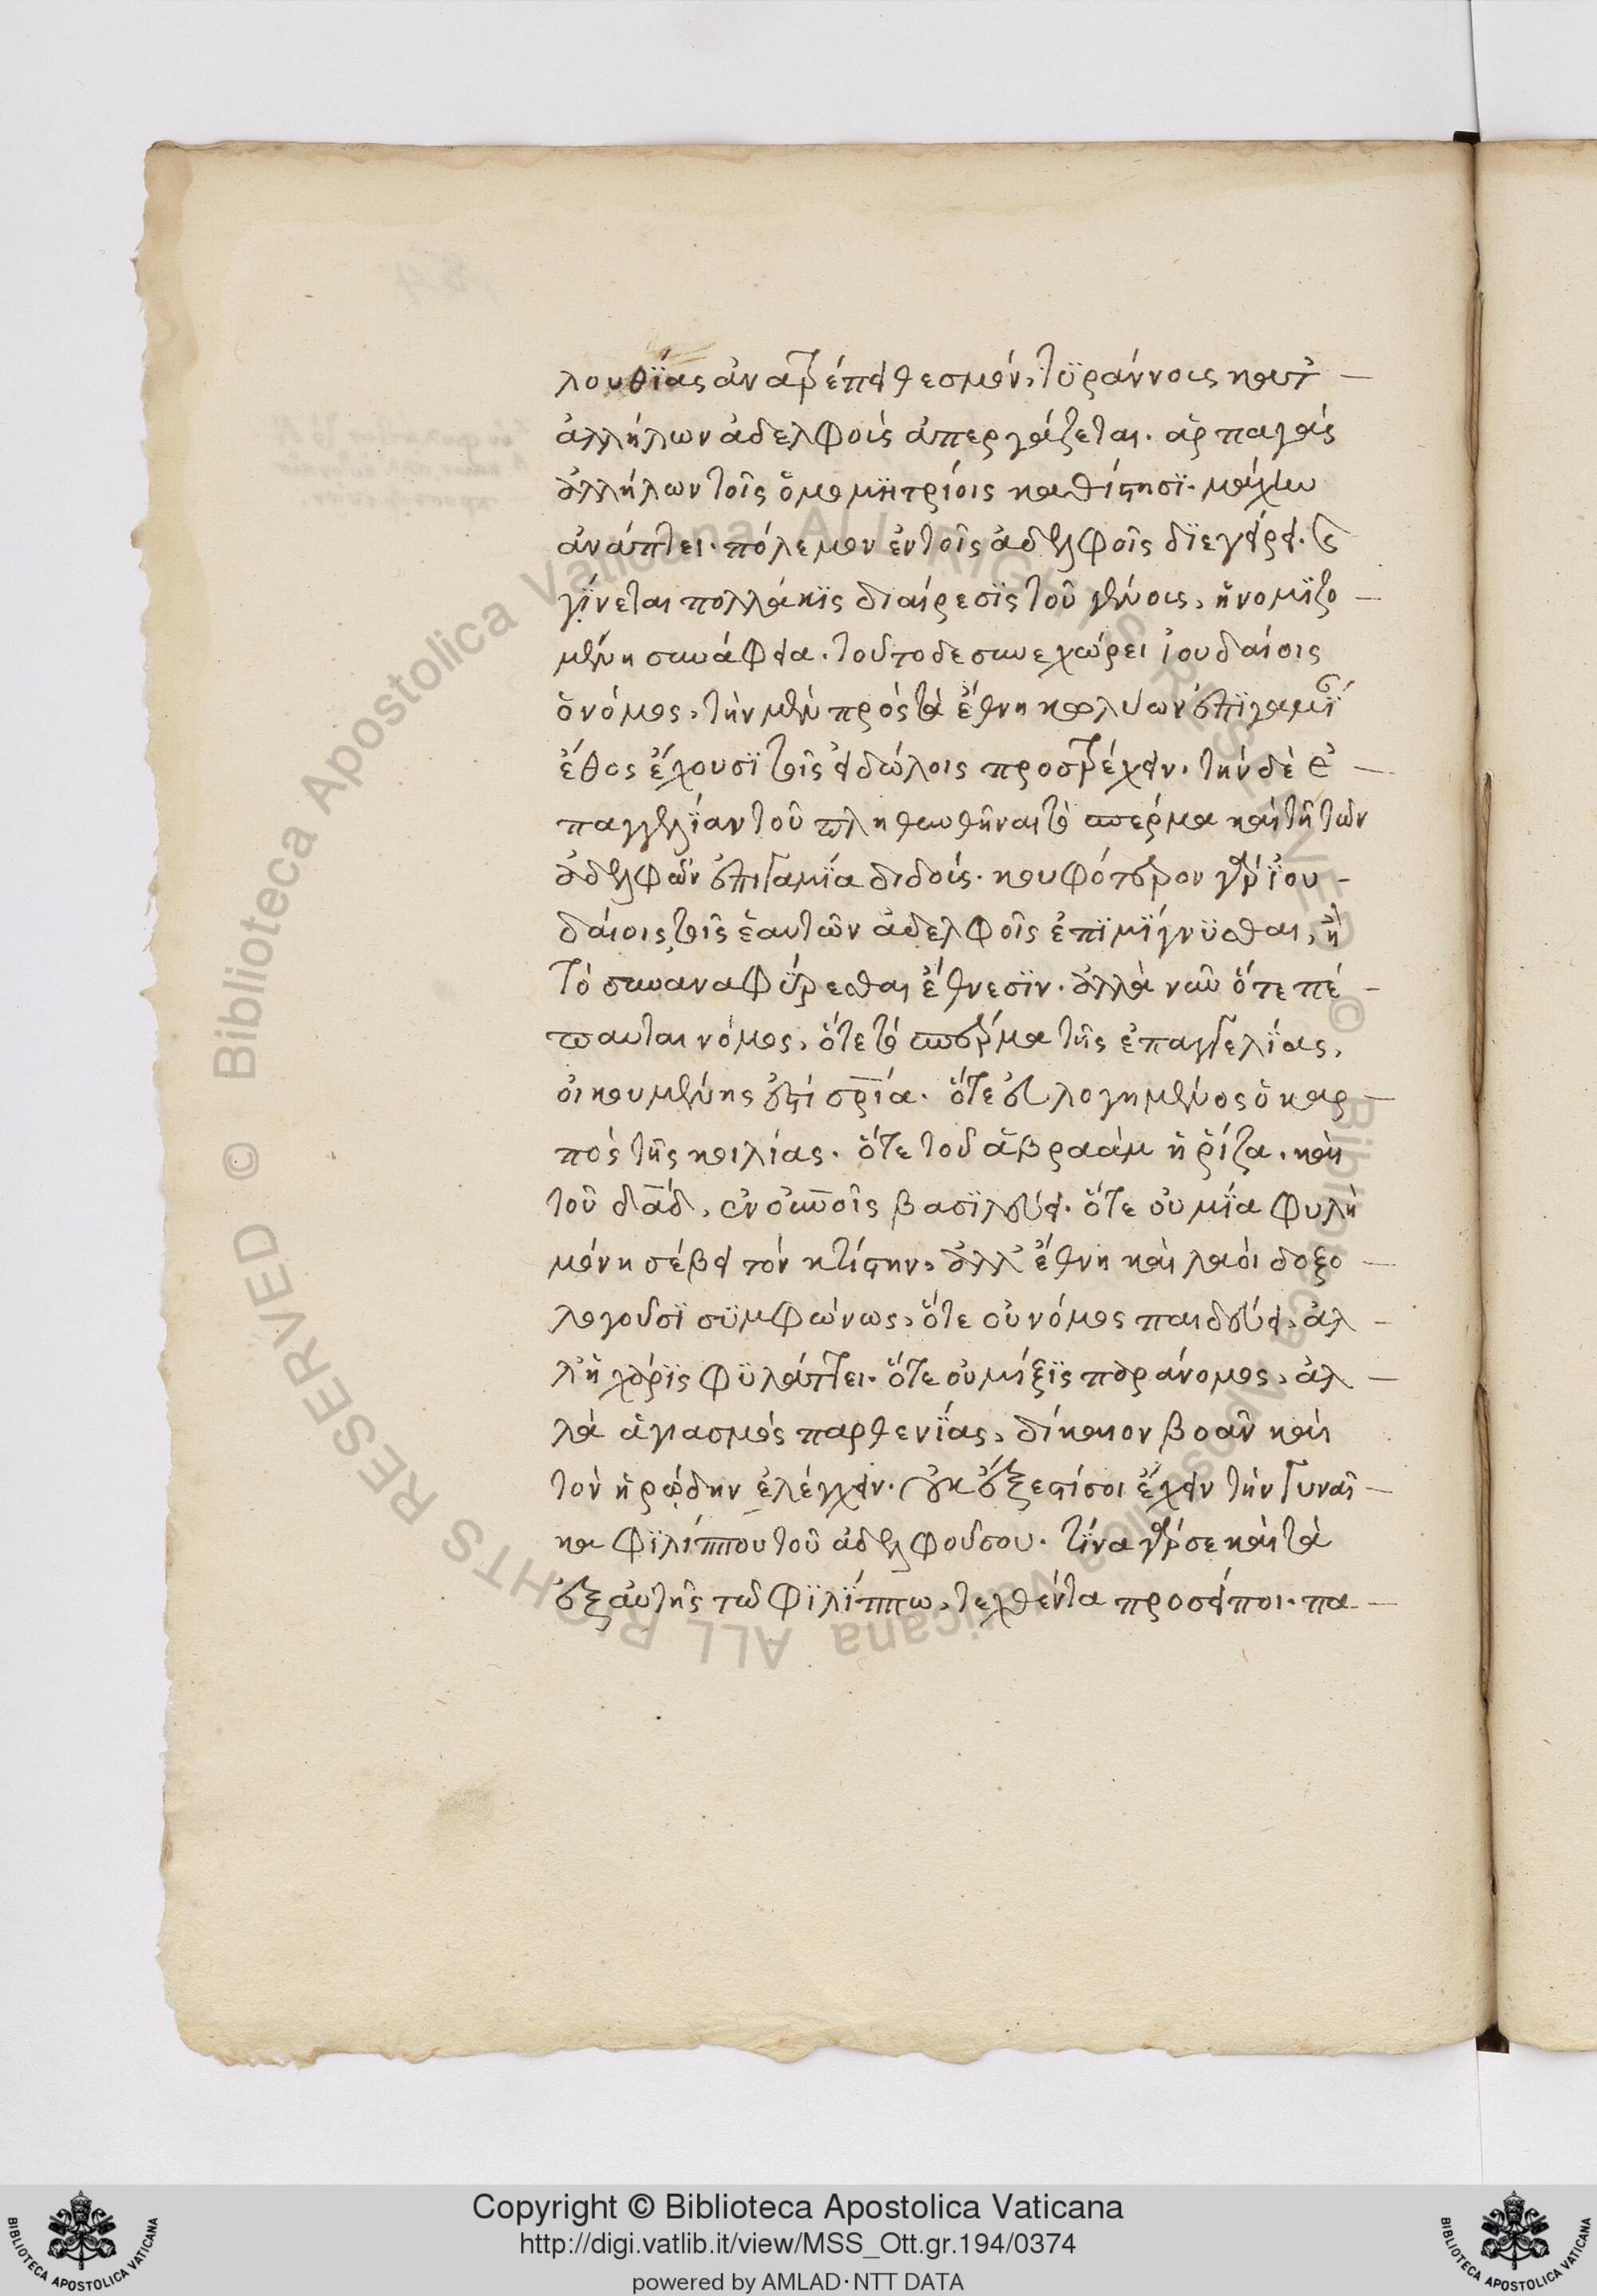 λουθΐας ἀνατρέπει θεσμόν, τϋράννους κατ
ἀλλήλων ἀδελφοὺς ἀπεργάζεται. ἁρπαγὰς
ἀλλήλων τοῖς ὁμομητρίοις καθίστησϊ. μάχην
ἀνάπτει. πόλεμον ἐν τοῖς ἀδελφοῖς δϊεγείρει. καὶ
γίνεται πολλάκϊς διαίρεσϊς τοῦ γένους, ἡ νομϊζο
μένη συνάφεια. τοῦτο δε συνεχώρει ἰουδαίοις
ὁ νόμος, τὴν μὲν πρὸς τὰ ἔθνη κωλύων ἐπϊγαμΐ
ἔθος ἔχουσϊ τοῖς εἰδώλοις προστρέχειν. τὴν δὲ ἐ
παγγελΐαν τοῦ πληθυνθῆναι τὸ σπέρμα καὶ τῆ τῶν
ἀδελφῶν ἐπιγαμΐα διδούς. κουφότερον γὰρ ἰου
δαίοις τοῖς ἑαυτῶν ἀδελφοῖς ἐπϊμΐγνϋσθαι, ἢ
τὸ συναναφύρεσθαι ἔθνεσϊν. ἀλλὰ νῦν ὅτε πέ
παυται νόμος, ὅτε τὸ σπέρμα τῆς ἐπαγγελΐας,
οἰκουμένης ἐστὶ σρΐα. ὅτε εὐλογημένος ὁ καρ
πὸς τῆς κοιλίας. ὅτε τοῦ ἀβραὰμ ἡ ῥίζα. καὶ
τοῦ δαδ, ἐν οὐνοῖς βασϊλεύει. ὅτε οὐ μΐα φυλὴ
μόνη σέβει τὸν κτίστην, ἀλλ' ἔθνη καὶ λαοὶ δοξο
λογοῦσϊ συμφώνως, ὅτε οὐ νόμος παιδεύει, ἀλ
λ' ἡ χάρϊς φϋλάττει. ὅτε οὐ μίξϊς παράνομος, ἀλ
λὰ ἁγιασμὸς παρθενΐας, δίκαιον βοᾶν καὶ
τὸν ἡρώδην ἐλέγχειν. οὐκ ἔξεστί σοι ἔχειν τὴν γυναῖ
κα φϊλίππου τοῦ ἀδελφοῦ σου. τΐνα γάρ σε καὶ τὰ
ἐξ αὐτῆς τῶ φϊλΐππω, τεχθέντα προσείποι. πα
Copyright © Biblioteca Apostolica Vaticana
http://digi.vatlib.it/view/MSS_Ott.gr.194/0374
powered by AMLAD·NTT DATA